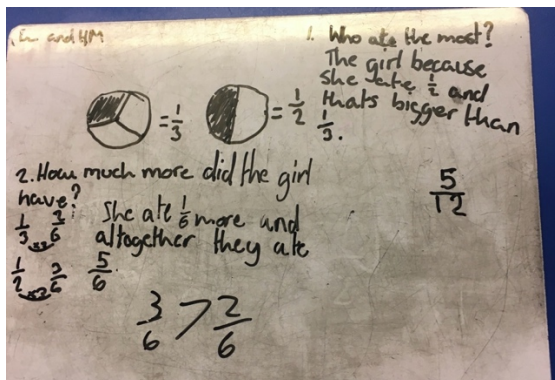 and HM
1. Who ate the most?
The girl because
she ate 1/2 and
thats bigger than
1/3.
= 1/3
= 1/2
2. How much more did the girl
have?
She ate 1/6 more and
altogether they ate
5/6.
1/3 2/6
1/2 3/6
3/6 > 2/6
5/12